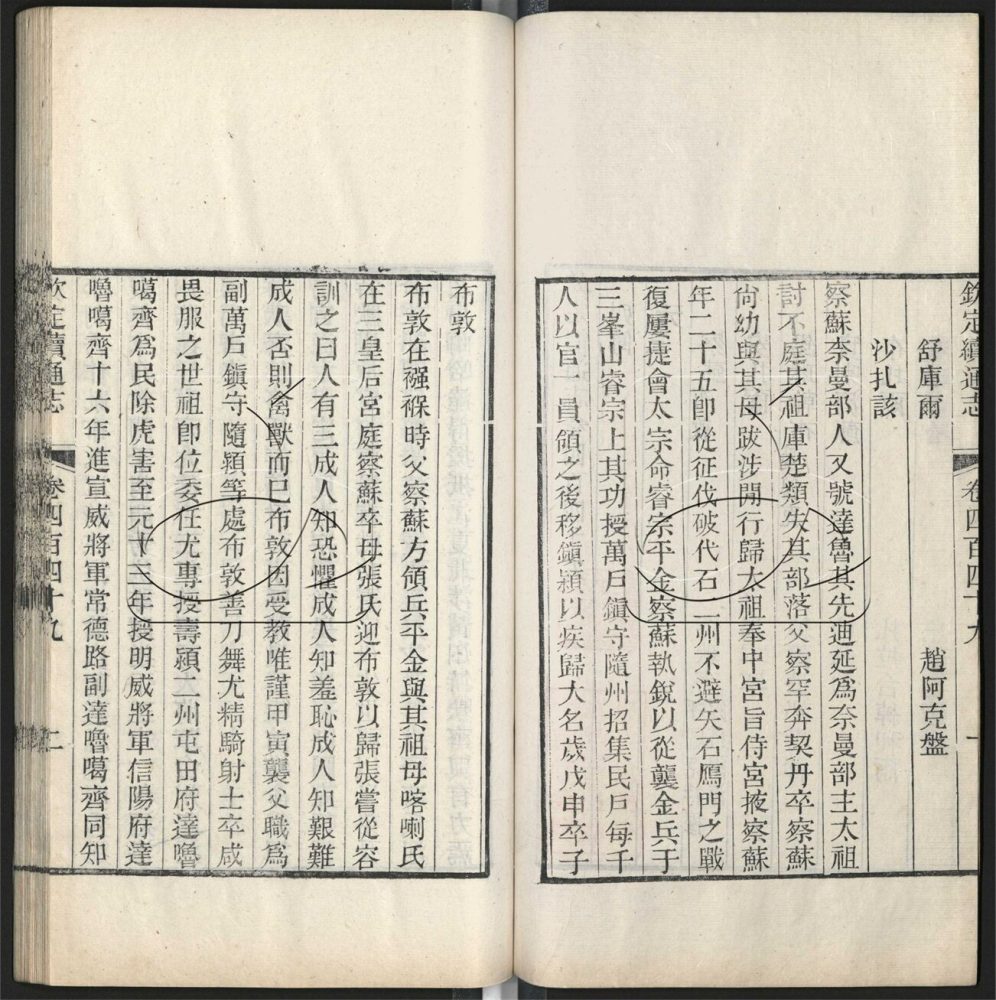 欽定續通志 卷四百四十九 一
舒庫爾 趙阿克盤
沙扎該
察蘇柰曼部人又號達魯其先迪延為奈曼部主太祖
討不庭其祖庫楚類失其部落父察罕奔契丹卒察蘇
尙幼與其母跋涉閒行歸太祖奉中宮旨侍宮掖察蘇
年二十五卽從征伐破代石二州不避矢石鴈門之戰
復屢捷會太宗命睿宗平金察蘇執銳以從襲金兵于
三峯山睿宗上其功授萬戶鎮守隨州招集民戶每千
人以官一員領之後移鎮潁以疾歸大名歲戊申卒子
布敦
布敦在襁褓時父察蘇方領兵平金與其祖母喀喇氏
在三皇后宮庭察蘇卒母張氏迎布敦以歸張嘗從容
訓之曰人有三成人知恐懼成人知羞恥成人知艱難
成人否則禽獸而已布敦因受教唯謹甲寅襲父職為
副萬戶鎮守隨潁等處布敦善刀舞尤精騎射士卒咸
畏服之世祖卽位委任尤專授壽潁二州屯田府達嚕
噶齊為民除虎害至元十三年授明威將軍信陽府達
嚕噶齊十六年進宣威將軍常德路副達嚕噶齊同知
欽定續通志 卷四百四十九 二